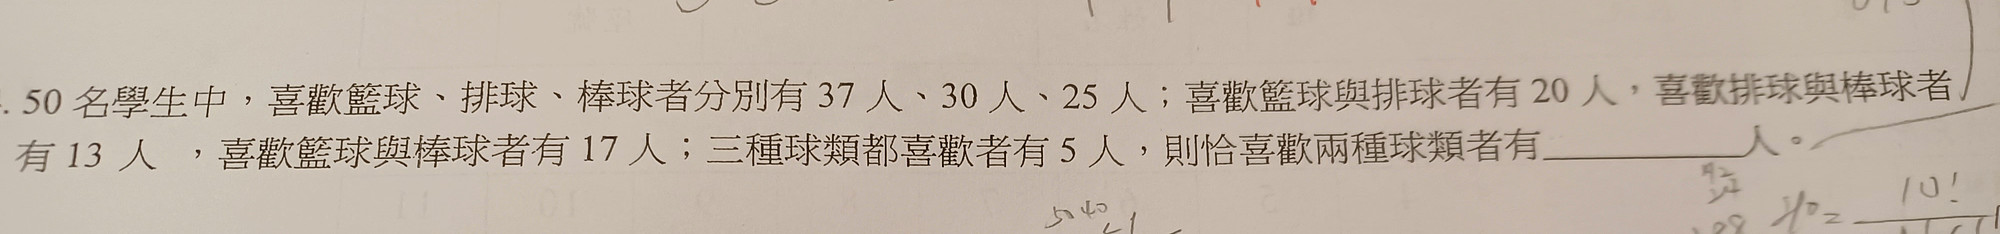 . 50 名學生中，喜歡籃球、排球、棒球者分別有 37 人、30 人、25 人；喜歡籃球與排球者有 20 人，喜歡排球與棒球者
有 13 人 ，喜歡籃球與棒球者有 17 人；三種球類都喜歡者有 5 人，則恰喜歡兩種球類者有__________人。
50 40
10!